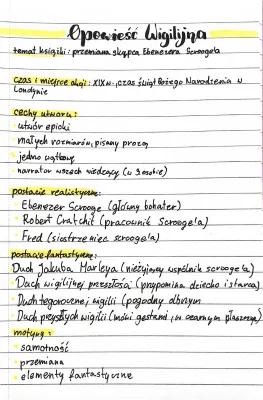 Opowieść Wigilijna
temat książki: przemiana skąpca Ebenezera Scrooge'a
czas i miejsce akcji: XIX w., czas świąt Bożego Narodzenia w
Londynie
cechy utworu:
utwór epicki
małych rozmiarów, pisany prozą
jedno wątkowy
narrator wszech wiedzący (w 3 osobie)
postacie realistyczne:
Ebenezer Scrooge (główny bohater)
Robert Cratchit (pracownik Scrooge'a)
Fred (siostrzeniec scrooge'a)
postacie fantastyczne:
Duch Jakuba Marleya (nieżyjący wspólnik scrooge'a)
Duch wigilijnej przeszłości (przypomina dziecko i starca)
Duch tegorocznej wigilii (pogodny olbrzym)
Duch przyszłych wigilii (mówi gestami, w czarnym płaszczu)
motywy:
samotność
przemiana
elementy fantastyczne